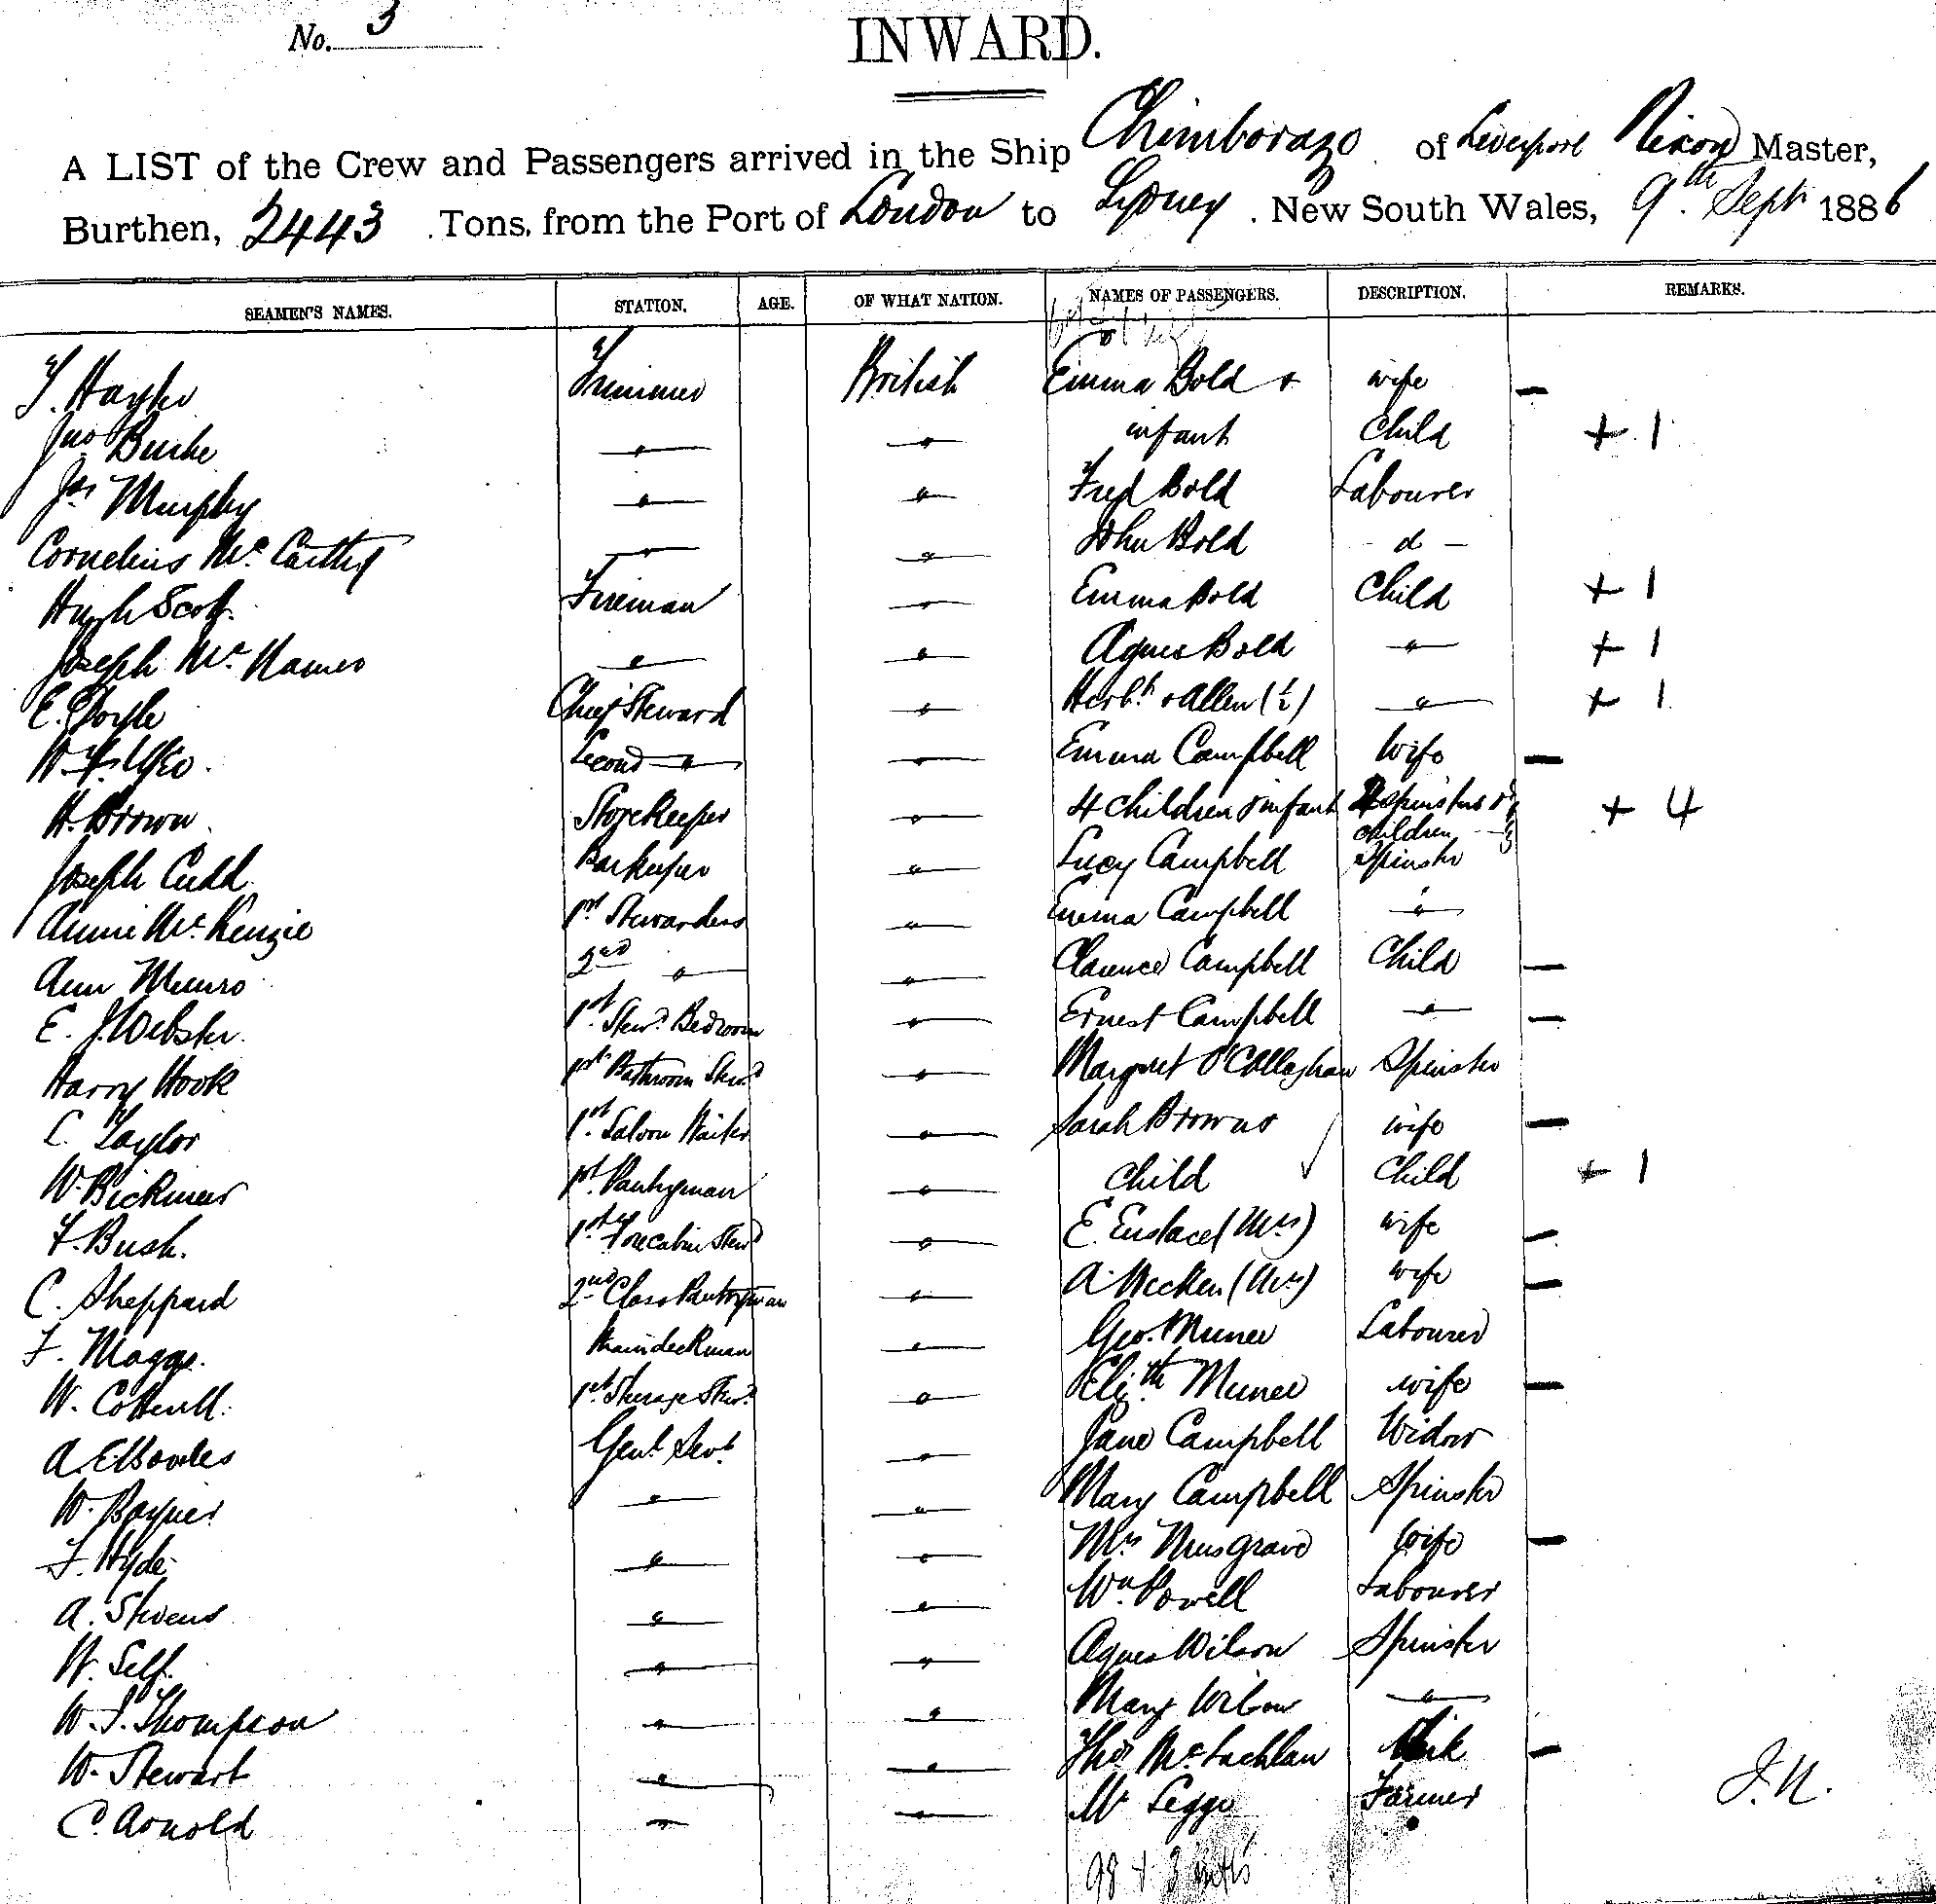 No. 3
INWARD.
A LIST of the Crew and Passengers arrived in the Ship Chimborazo of Liverpool Nixon Master,
Burthen, 2443 Tons, from the Port of London to Sydney. New South Wales, 9th Sept 1886
SEAMEN'S NAMES. STATION. AGE. OF WHAT NATION. NAMES OF PASSENGERS. DESCRIPTION. REMARKS.
Trimmer British Emma Bold + wife —
Jno Burke " " infant Child + 1
Jas Murphy " " Fred Bold Labourer
Cornelius McCarthy " " John Bold - d -
Hugh Scott Fireman " Emma Bold Child + 1
Joseph Mc " " Agnes Bold " + 1
E. Doyle Chief Steward " Herbt + Allen (½) " + 1
Second " " Emma Campbell Wife —
H. Brown Storekeeper " 4 children + infant spinsters + + 4
children
Joseph Cudd Barkeeper " Lucy Campbell Spinster
Annie McKenzie 1st Stewardess " Emma Campbell "
Ann Munro 2nd " " Clarence Campbell Child —
E. J. Webster 1st Stewd Bedroom " Ernest Campbell " —
Harry Hook 1st Bathroom Stewd " Margret O'Callaghan Spinster
C. Taylor 1st Saloon Waiter " Sarah Brown + wife —
W. 1st Pantryman " child Child + 1
F. Bush. 1st Forecabin Stewd " E. Eustace (Mrs) wife —
C. Sheppard 2nd Class Pantryman " A. (Mrs) wife —
F. Maggs. Maindeckman " Geo. Labourer
W. Cotterill. 1st Steerage Stewd " Elizth wife —
A. E. Bowles Genl Servt " Jane Campbell Widow
W. Rayner " " Mary Campbell Spinster
F. Hyde " " Mrs Musgrave Wife —
A. Stevens " " Wm Powell Labourer
W. Self. " " Agnes Wilson Spinster
W. S. Thompson " " Mary Wilson "
W. Stewart " " Thos McLachlan —
C. Arnold " " Mr Leggo Farmer
J.N.
98 + 3 infts